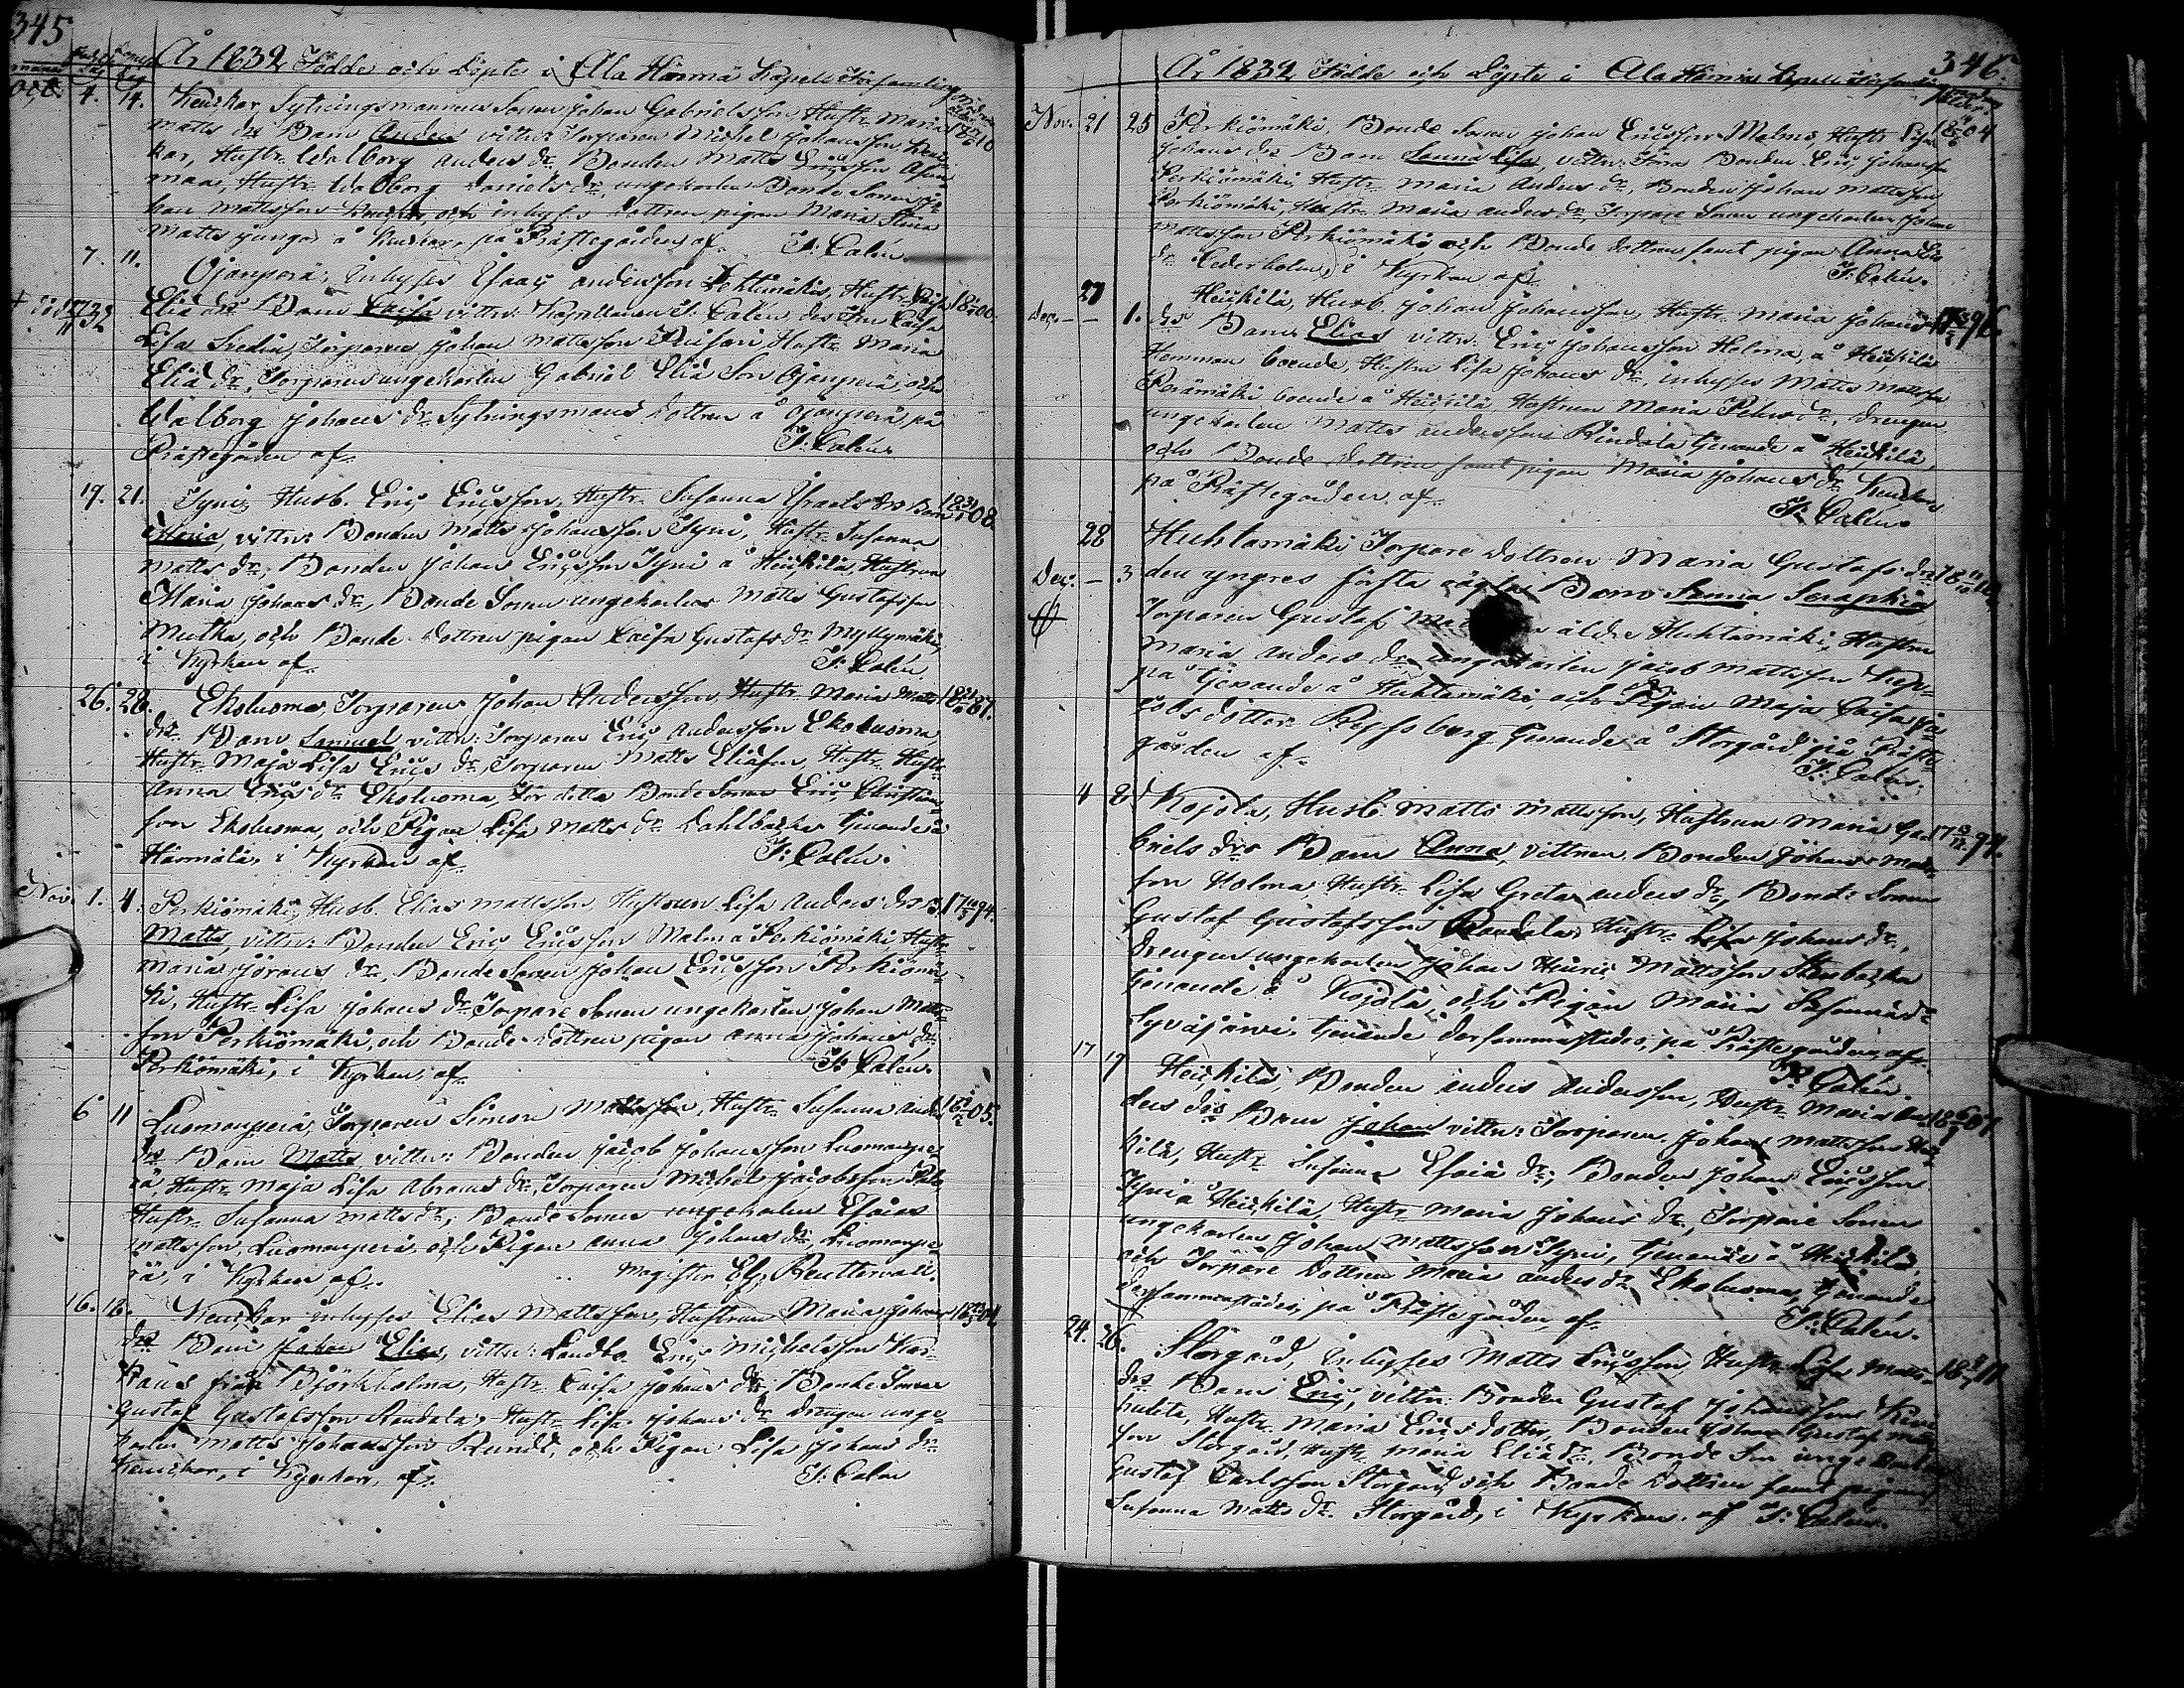 345
År 1832 Födde och Döpte i Ala Härmä Kapells Församling
Oct. 4. 14. Keuckar, Sytningsmannens Sonen Johan Gabrielsson, Hustr. Maria 18 10
Matts dr Barn Anders vittn: Torparen Michel Johansson Keuc
kar, Hustr. Walborg Anders dr Bonden Matts Ericsson
maa, Hustr. Walborg Daniels dr, ungekarlen Bonde Sonen Jo
han Mattsson Keuckar, och inhyses dottren pigan Maria Stina
Matts å Keuckar, på Prästegården af. J. Calén.
7. 11. Ojanperä, Inhysses Isaac Andersson Lehtimäkis, Hustr. Caisa 18 00.
+ död 32 Elia drs Barn Caisa vittn: Kapellanen J. Calén, des Fru Caisa
Lisa Fredin, Torparen Johan Mattsson Hustr. Maria
Elia dr, Torparen ungekarlen Gabriel Elia Son Ojanperä, och
Walborg Johans dr Sytningsmans dottren å Ojanperä, på
Prästegården af. J. Calén.
19. 21. Syni, Husb. Eric Ericsson, Hustr. Susanna Israels drs Barn 18 08.
Maria, vittn: Bonden Matts Johansson Syni, Hustr. Susanna
Matts dr, Bonden Johan Ericsson Syni å Heickilä, Hustrun
Maria Johans dr, Bonde Sonen ungekarlen Matts Gustafsson
Mutka, och Bonde dottren pigan Caisa Gustafs dr Myllymäki,
i Kyrkan af. J. Calén.
26. 28. Ekoluoma, Torparen Johan Andersson, Hustr. Maria Matts 18 87.
drs Barn Samuel, vittn: Torparen Eric Andersson Ekoluoma
Hustr. Maja Lisa Erics dr, Torparen Matts Eliasson, Hustr. Hustr.
Anna Erics dr Ekoluoma, för detta Bonde Sonen Eric Christian
son Ekoluoma, och Pigan Lisa Matts dr Dahlbacka tjenande å
Härmälä, i Kyrkan af. J. Calén.
Nov. 1. 4. Perkiömäki, Husb. Elias Mattsson Hustrun Lisa Anders drs B. 17 94.
Matts, vittn: Bonden Eric Ericsson Malm å Perkiömäki, Hustr.
Maria Jörans dr, Bonde Sonen Johan Ericsson Perkiömä
ki, Hustr. Lisa Johans dr, Torpare Sonen ungekarlen Johan Matts
son Perkiömäki, och Bonde dottren pigan Anna Johans dr
Perkiömäki, i Kyrkan, af. J. Calén.
6 11 Luomanperä, Torparen Simon Mattsson, Hustr. Susanna Anders 18 05.
drs Barn Matts vittn: Bonden Jacob Johansson Luomanpe
rä, Hustr. Maja Lisa Abrams dr, Torparen Michel Jacobsson
Hustr. Susanna Matts dr, Bonde Sonen ungekarlen Esaias
Mattsson Luomanperä och Pigan Anna Johans dr Luomanpe
rä, i Kyrkan af. Magister El. Reuttervall.
16. 18. Keuckar inhysses Elias Mattsson, Hustrun Maria Johans 18 04
drs Barn Johan Elias, vittn: Landbo Eric Michelsson
från Björkholma, Hustr. Caisa Johans dr, Bonde Sonen
Gustaf Gustafsson Randala, Hustr. Lisa Johans dr, drengen unge
karlen Matts Johansson Rundt, och Pigan Lisa Johans dr
Keuckar, i Kyrkan, af. J. Calén
346.
År 1832 Födde och Döpte i Ala Härmä Kapells Församling
Nov. 21 25 Perkiömäki, Bonde Sonen Johan Ericsson Malms, Hustr. Lisa 18 04
Johans drs Barn Sanna Lisa, vittn: förra Bonden Eric Johansson
Perkiömäki, Hustr. Maria Anders dr, Bonden Johan Mattsson
Perkiömäki, Hustr. Maria Anders dr, Torpare Sonen ungekarlen Johan
Mattsson Perkiömäki och Bonde dottren samt pigan Anna
dr Cederholm, i Kyrkan af. J. Calén.
27 Heickilä, Husb. Johan Johansson, Hustr. Maria Johans 17 96.
Dec. 1. drs Barn Elias vittn: Eric Johansson Holma, å Heickilä
Hemman boende, Hustrun Lisa Johans dr, inhysses Matts Mattsson
Perämäki boende å Heickilä Hustrun Maria Pehrs dr, drengen
ungekarlen Matts Andersson Rindala tjenande å Heickilä
och Bonde dottren samt pigan Maria Johans dr Keuckar
på Prästegården, af. J. Calén.
28 Huhtamäki Torpare dottren Maria Gustafs drs 18
Dec. 3 den yngres första oägta Barn Sanna Seraphia
Torparen Gustaf äldre Huhtamäki, Hustrun
Maria Anders dr, ungekarlen Jacob Mattsson
på tjenande å Huhtamäki, och Pigan Maja Caisa Ja
cobs dotter tjenande å Storgård på Präste
gården af. J. Calén.
4 8 Kojola, Husb. Matts Mattsson, Hustrun Maria Ga 17 94.
briels drs Barn Anna, vittnen Bonden Johan Matts
son Holma, Hustr. Lisa Greta Anders dr, Bonde Sonen
Gustaf Gustafsson Randala, Hustr. Lisa Johans dr,
drengen ungekarlen Johan Henric Mattsson Stenbacka
tjenande å Kojola, och Pigan Maria
tjenande dersammastädes, på Prästegården, af.
J. Calén.
17 17 Heickilä, Bonden Anders Andersson, Hustr. Maria An 18 07.
ders drs Barn Johan vittn: Torparen Johan Mattsson Heic
kilä, Hustr. Susanna Esaiæ dr, Bonden Johan Ericsson
Syni å Heickilä, Hustr. Maria Johans dr, Torpare Sonen
ungekarlen Johan Mattsson Syni, tjenande å Heickilä,
och Torpare dottren Maria Anders dr Ekoluoma, tjenande
dersammastädes, på Prästegården, af. J. Calén.
24. 26. Storgård, Inhysses Matts Ericsson, Hustr. Lisa Matts 18 11
drs Barn Eric, vittn: Bonden Gustaf Johansson Kivi
huhta, Hustr. Maria Erics dotter, Bonden Johan Gustaf Matts
son Storgård, Hustr. Maria Elia dr, Bonde Son ungekarlen
Gustaf Carlsson Storgård och Bonde dottren samt pigan
Susanna Matts dr Storgård, i Kyrkan. af J. Calén.